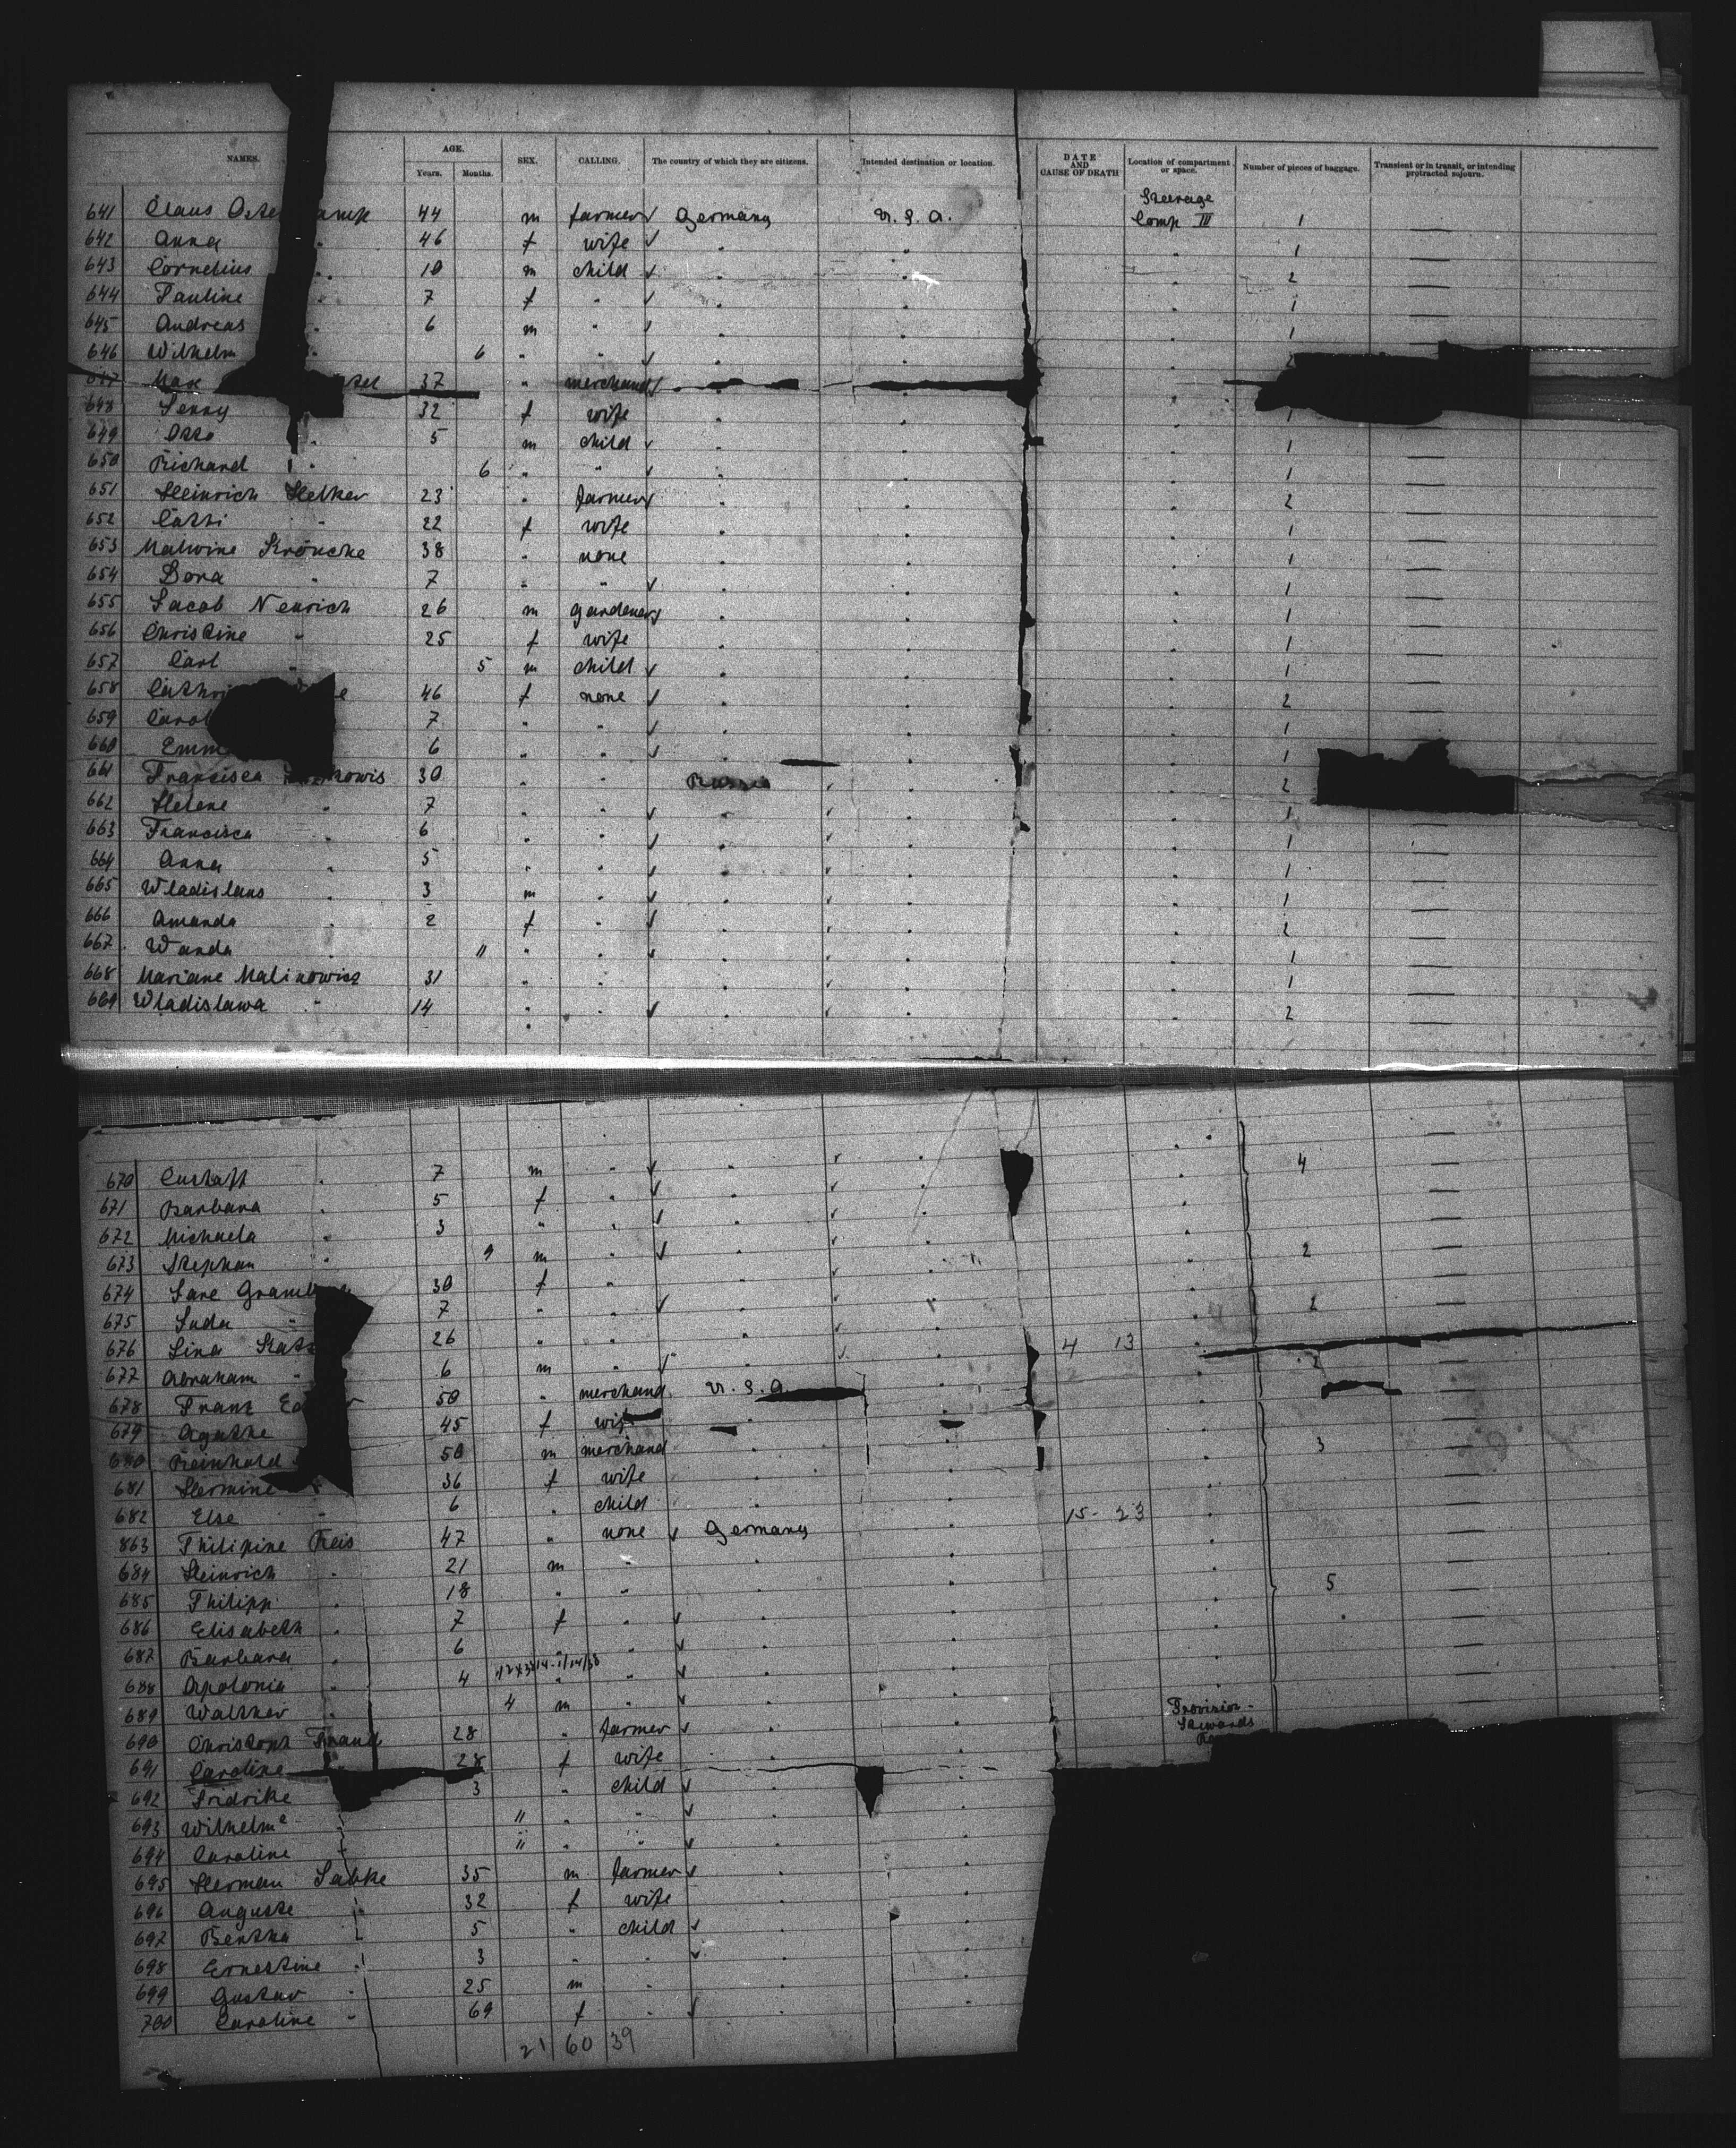 NAMES. AGE. SEX. CALLING. The country of which they are citizens. Intended destination or location. DATE AND CAUSE OF DEATH Location of compartment or space. Number of pieces of baggage. Transient or in transit, or intending protracted sojourn.
Years. Months.
Steerage
641 Claus Oste amp 44 m farmer ✓ Germany U.S.A. Comp III 1
642 Anna " 46 f wife ✓ " " " 1
643 Cornelius " 10 m child ✓ " " " 2 —
644 Pauline " 7 f " ✓ " " " 1 —
645 Andreas " 6 m " ✓ " " " 1 —
646 Wilhelm " 6 " " ✓ " "
647 Max 37 " merchand ✓
648 Jenny 32 f wife " " " 1
649 Otto " 5 m child ✓ " " " 1 —
650 Richard " 6 " " ✓ " " " 1 —
651 Heinrich Helker 23 " farmer ✓ " " " 2 —
652 Catti " 22 f wife " " " 1 —
653 Malwine Kröncke 38 " none " " " 1 —
654 Dora " 7 " " ✓ " " " 1 —
655 Jacob Neurich 26 m gardener ✓ " " " 1 —
656 Christine " 25 f wife " " " 1 —
657 Carl " 5 m child ✓ " " " 1 —
658 Cathri e 46 f none ✓ " " " 2 —
659 Carol 7 " " ✓ " " " 1 —
660 Emm 6 " " ✓ " " " 1
661 Francisca owis 30 " " Russia " " 2
662 Helene " 7 " " ✓ " " " 1
663 Francisca " 6 " " ✓ " " " 1 —
664 Anna " 5 " " ✓ " " " 1 —
665 Wladislaus " 3 m " ✓ " " " 1 —
666 Amanda " 2 f " ✓ " " " 2 —
667 Wanda " 11 " " ✓ " " " 1 —
668 Mariane Malinowicz 31 " " " " " 1 —
669 Wladislawa " 14 " " ✓ " " " 2 —
670 Custaff " 7 m " ✓ " " " 4 —
671 Barbara " 5 f " ✓ " " " —
672 Michaela " 3 " " ✓ " " " —
673 Stephan " 9 m " ✓ " " " 2 —
674 Sare 30 f " " " " —
675 7 " " ✓ " " " 2 —
676 Lina 26 " " " " 4 13 "
677 Abraham " 6 m " ✓ " " " 2
678 Franz 50 " merchand U.S.A.
679 Agathe 45 f wife " —
680 Reinhold 50 m merchand " " " 3 —
681 Hermine " 36 f wife " " " —
682 Else " 6 " child " " 15- 23 " —
863 Philipine Reis 47 " none ✓ Germany " " —
684 Heinrich " 21 m " " " " 5 —
685 Philipp " 18 " " " " " —
686 Elisabeth " 7 f " ✓ " " " —
687 Barbara " 6 " ✓ " " " —
688 Apolonia " 4 " " ✓ " " " —
689 Walther " 4 m " ✓ " " Provision- —
Stewards
690 Christoph 28 " farmer ✓ " "
691 Caroline 28 f wife
692 Fridrike 3 " child ✓ " "
693 Wilhelme " 11 " " ✓ " "
694 Caroline " 11 " " ✓ " "
695 Herman 35 m farmer ✓ " "
696 Auguste " 32 f wife " "
697 Bertha " 5 " child ✓ " "
698 Ernestine " 3 " " ✓ " "
699 Gustav " 25 m " " "
700 Caroline " 69 f " ✓ " "
21 60 39